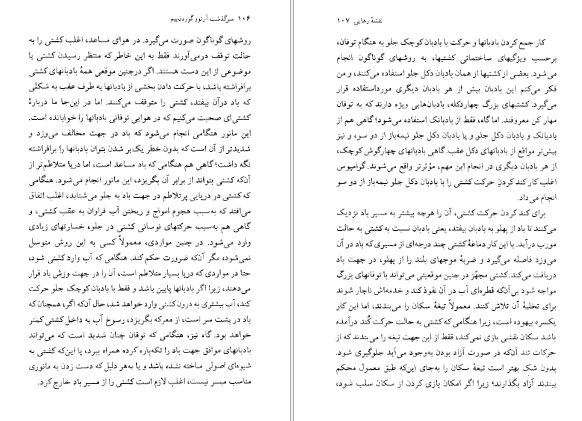 ۱۰۶ سرگذشت آرتور گوردن پیم
روشهای گوناگون صورت می‌گیرد. در هوای مساعد، اغلب کشتی را به
حالت توقف درمی‌آورند فقط به این خاطر که منتظر رسیدن کشتی یا
موضوعی از این دست هستند. اگر درچنین موقعی همهٔ بادبانهای کشتی
برافراشته باشد، با حرکت دادن بخشی از بادبانها به طرف عقب به شکلی
که باد درآن بیفتد، کشتی را متوقف می‌کنند. اما در این‌جا ما دربارهٔ
کشتی‌ای صحبت می‌کنیم که در هوایی توفانی بادبانها را خوابانده است.
این مانور هنگامی انجام می‌شود که باد در جهت مخالف می‌وزد و
شدیدتر از آن است که بدون خطر یک‌بر شدن بتوان بادبانها را برافراشته
نگه داشت؛ گاهی هم هنگامی که باد مساعد است، اما دریا متلاطم‌تر از
آن‌که کشتی بتواند از برابر آن بگریزد، این مانور انجام می‌شود. هنگامی
که کشتی در دریایی پرتلاطم در جهت باد به جلو می‌شتابد، اغلب اتفاق
می‌افتد که به‌سبب هجوم امواج و ریختن آب فراوان به عقب کشتی، و
گاهی هم به‌سبب حرکتهای نوسانی کشتی در جلو، خسارتهای زیادی
وارد می‌شود. در چنین مواردی، معمولاً کسی به این روش متوسل
نمی‌شود، مگر آن‌که ضرورت حکم کند. هنگامی که آب وارد کشتی شود،
حتا در مواردی که دریا بسیار متلاطم است، آن را در جهت وزش باد قرار
می‌دهند، زیرا اگر بادبانها پایین باشد و فقط با بادبان کوچک جلو حرکت
کند، آب بیشتری به درون کشتی وارد خواهد شد، حال آن‌که اگر، همچنان که
باد در پشت سر است، از معرکه بگریزد، رسوخ آب به داخل کشتی کمتر
خواهد بود. گاه نیز، هنگامی که توفان چنان شدید است که می‌تواند
بادبانهای موافق جهت باد را تکه‌پاره کرده همراه ببرد، یا این‌که کشتی به
شیوه‌ای اصولی ساخته نشده باشد و یا به‌هر دلیل که دست زدن به مانوری
مناسب میسر نیست، اغلب لازم است کشتی را از مسیر باد خارج کرد.
نقشهٔ رهایی ۱۰۷
کار جمع کردن بادبانها و حرکت با بادبان کوچک جلو به هنگام توفان،
برحسب ویژگیهای ساختمانی کشتیها، به روشهای گوناگون انجام
می‌شود. بعضی از کشتیها از همان بادبان دکل جلو استفاده می‌کنند، و من
فکر می‌کنم این بادبان بیش از هر بادبان دیگری مورداستفاده قرار
می‌گیرد. کشتیهای بزرگ چهاردکله، بادبان‌هایی ویژه دارند که به توفان
مهار کن معروفند. اما گاه، فقط از بادبانک استفاده می‌شود؛ گاهی هم از
بادبانک و بادبان دکل جلو و یا بادبان دکل جلو نیمه‌باز از دو سو، و نیز
بیش‌تر مواقع از بادبانهای دکل عقب. گاهی بادبانهای چهارگوش کوچک،
از هر بادبان دیگری در انجام این مهم، مؤثرتر واقع می‌شوند. گرامپوس
اغلب کار کند کردن حرکت کشتی را با بادبان دکل جلو نیمه‌باز از دو سو
انجام می‌داد.
برای کند کردن حرکت کشتی، آن را هرچه بیشتر به مسیر باد نزدیک
می‌کنند تا باد از پهلو به بادبان بیفتد، یعنی بادبان نسبت به کشتی به حالت
مورب درآید. با این کار دماغهٔ کشتی چند درجه‌ای از مسیری که باد در آن
می‌وزد فاصله می‌گیرد و ضربهٔ موجهای بلند را از پهلو، در جهت باد
دریافت می‌کند. کشتی مجهز در چنین موقعیتی می‌تواند با توفانهای بزرگ
مواجه شود بی‌آنکه قطره‌ای آب در آن نفوذ کند و خدمه‌اش ناچار شوند
برای تخلیهٔ آن تلاش کنند. معمولاً تیغهٔ سکان را می‌بندند، اما این کار
یکسره بیهوده است، زیرا هنگامی که کشتی به حالت حرکت کُند درآمده
باشد سکان نقشی بازی نمی‌کند، فقط از این جهت تیغه را می‌بندند که از
حرکات تند آن‌که در صورت آزاد بودن به‌وجود می‌آید جلوگیری شود.
بدون شک بهتر است تیغهٔ سکان را به‌جای این‌که طبق معمول محکم
ببندند آزاد بگذارند؛ زیرا اگر امکان بازی کردن از سکان سلب شود،